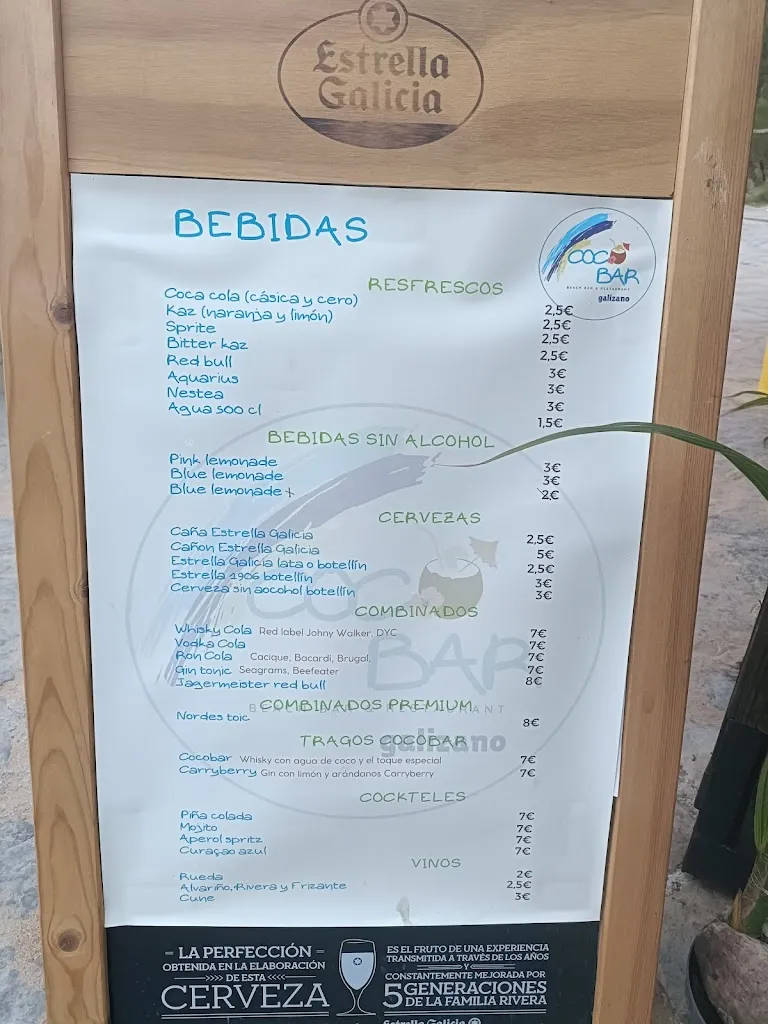 Estrella
Galicia
BEBIDAS
COCO
BAR
BEACH BAR & RESTAURANT
galizano
RESFRESCOS
Coca cola (cásica y cero) 2,5€
Kaz (naranja y limón) 2,5€
Sprite 2,5€
Bitter kaz 2,5€
Red bull 3€
Aquarius 3€
Nestea 3€
Agua 500 cl 1,5€
BEBIDAS SIN ALCOHOL
Pink lemonade 3€
Blue lemonade 3€
Blue lemonade + 2€
CERVEZAS
Caña Estrella Galicia 2,5€
Cañon Estrella Galicia 5€
Estrella Galicia lata o botellín 2,5€
Estrella 1906 botellín 3€
Cerveza sin aocohol botellín 3€
COMBINADOS
Whisky Cola Red label Johny Walker, DYC 7€
Vodka Cola 7€
Ron Cola Cacique, Bacardi, Brugal, 7€
Gin tonic Seagrams, Beefeater 7€
Jagermeister red bull 8€
COMBINADOS PREMIUM
Nordes toic 8€
TRAGOS COCOBAR
Cocobar Whisky con agua de coco y el toque especial 7€
Carryberry Gin con limón y arándanos Carryberry 7€
COCKTELES
Piña colada 7€
Mojito 7€
Aperol spritz 7€
Curaçao azul 7€
VINOS
Rueda 2€
Alvariño, Rivera y Frizante 2,5€
Cune 3€
COCO
BAR
BEACH BAR & RESTAURANT
galizano
LA PERFECCIÓN
OBTENIDA EN LA ELABORACIÓN
DE ESTA
CERVEZA
ES EL FRUTO DE UNA EXPERIENCIA
TRANSMITIDA A TRAVÉS DE LOS AÑOS
Y
CONSTANTEMENTE MEJORADA POR
5 GENERACIONES
DE LA FAMILIA RIVERA
Estrella Galicia